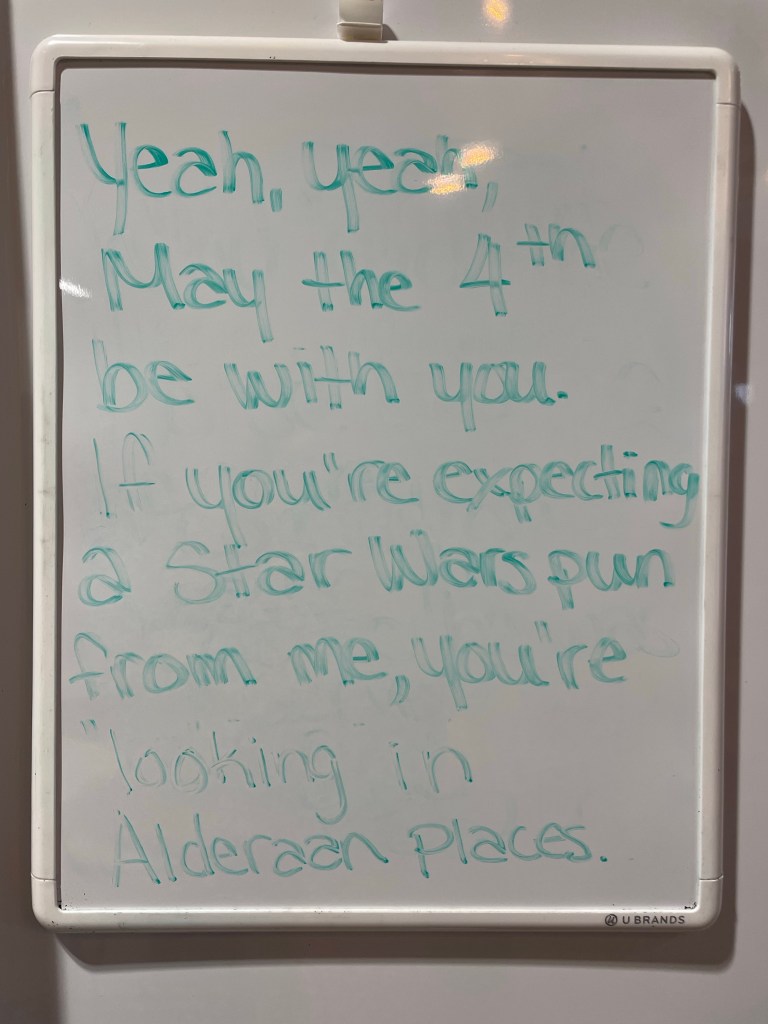 Yeah, yeah,
May the 4th
be with you.
If you're expecting
a Star Wars pun
from me, you're
"looking in
Alderaan places.
U BRANDS